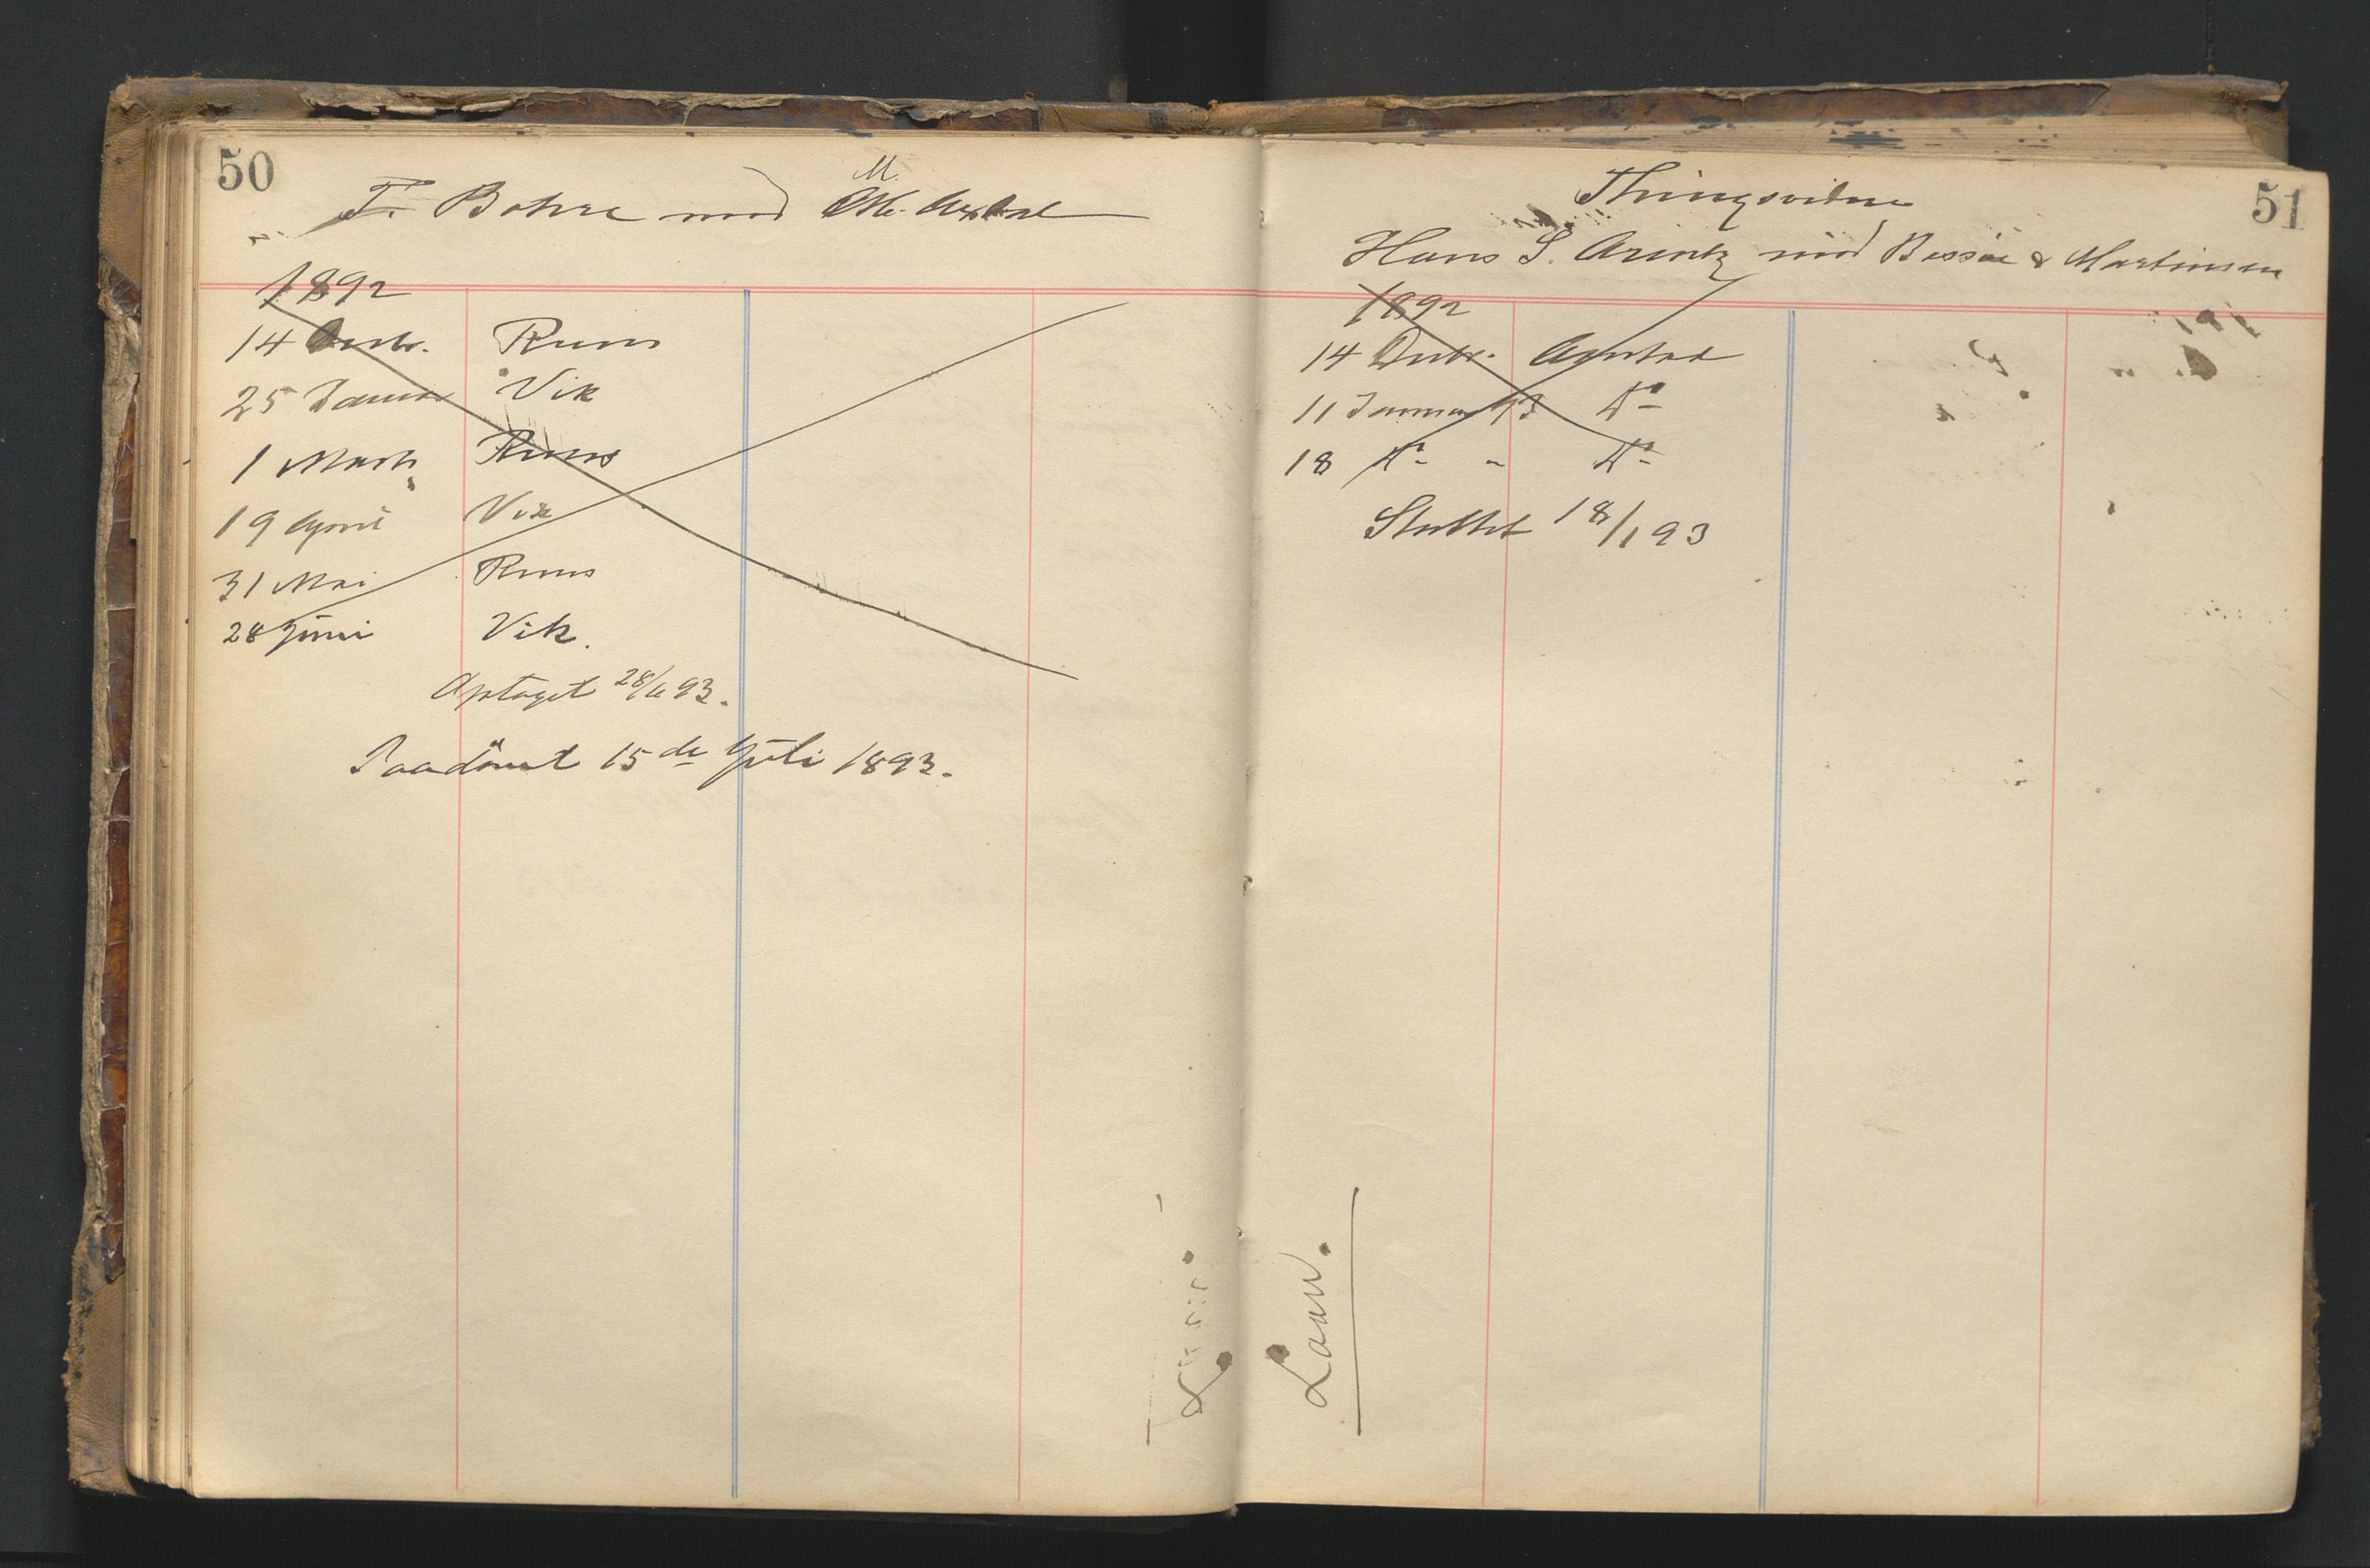 50
F. Bohre mod M.
1892
14 Decbr. Ruus
25 Januar Vik
1 Marts Ruus
19 April Vik
31 Mai Ruus
28 Juni Vik.
Optaget 28/6 93.
Paadömt 15de Juli 1893.
51
Thingsvidne
Hans S. Arentz mod Bessöe & Martinsen
1892
14 Decbr. Agstad
11 Januar 93 Do
18 Do " Do
Sluttet 18/1 93
Laan.